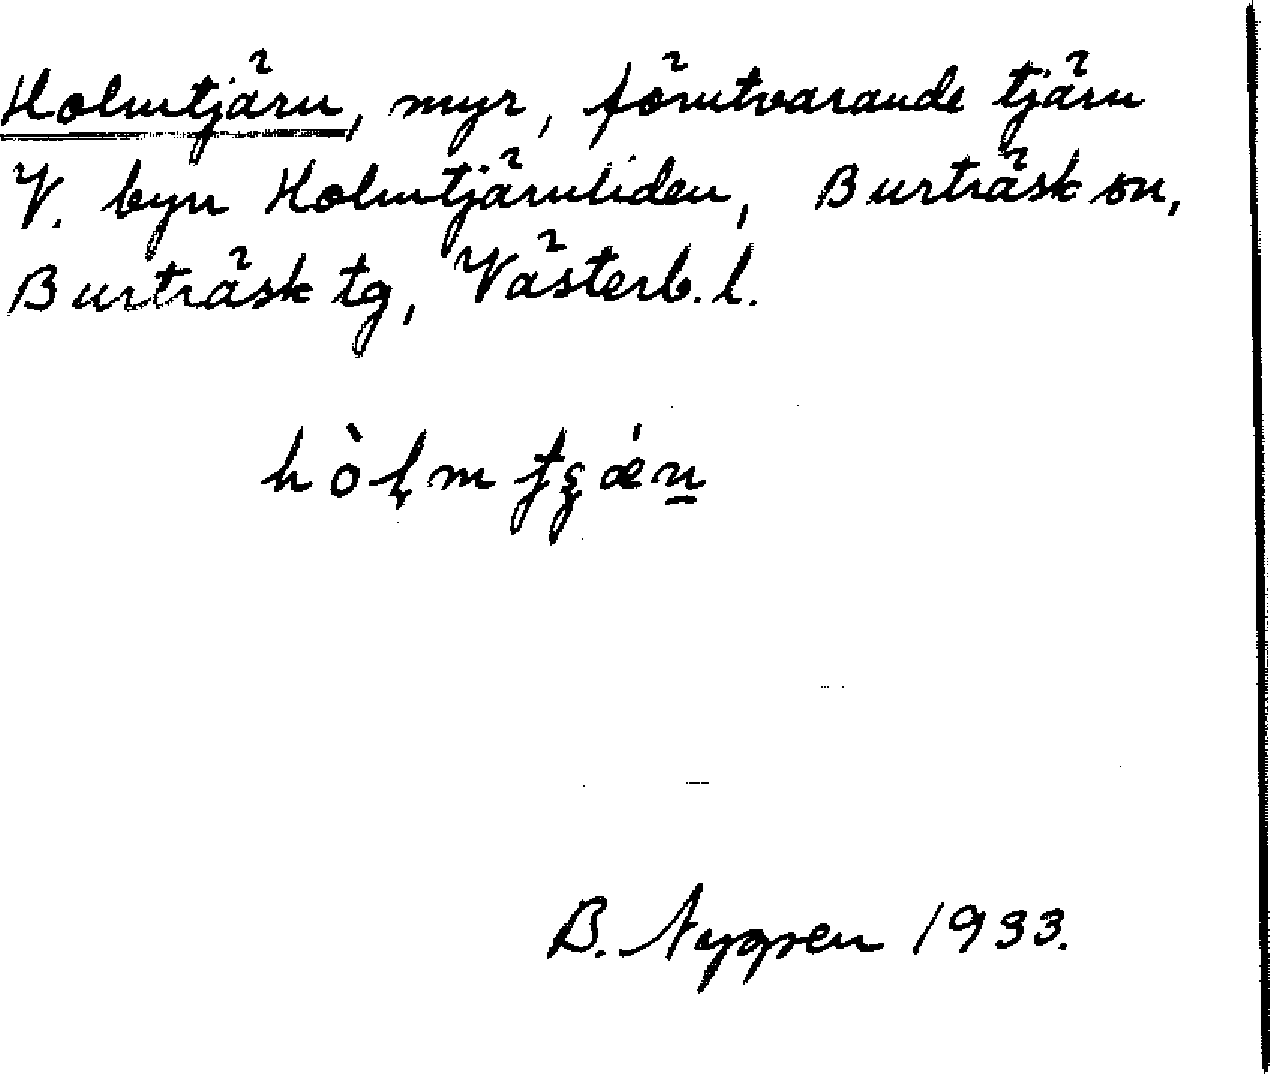 Holmtjärn, myr, förutvarande tjärn
V. byn Holmtjärnliden, Burträsk sn,
Burträsk tg, Västerb. l.
B. Nygren 1933.